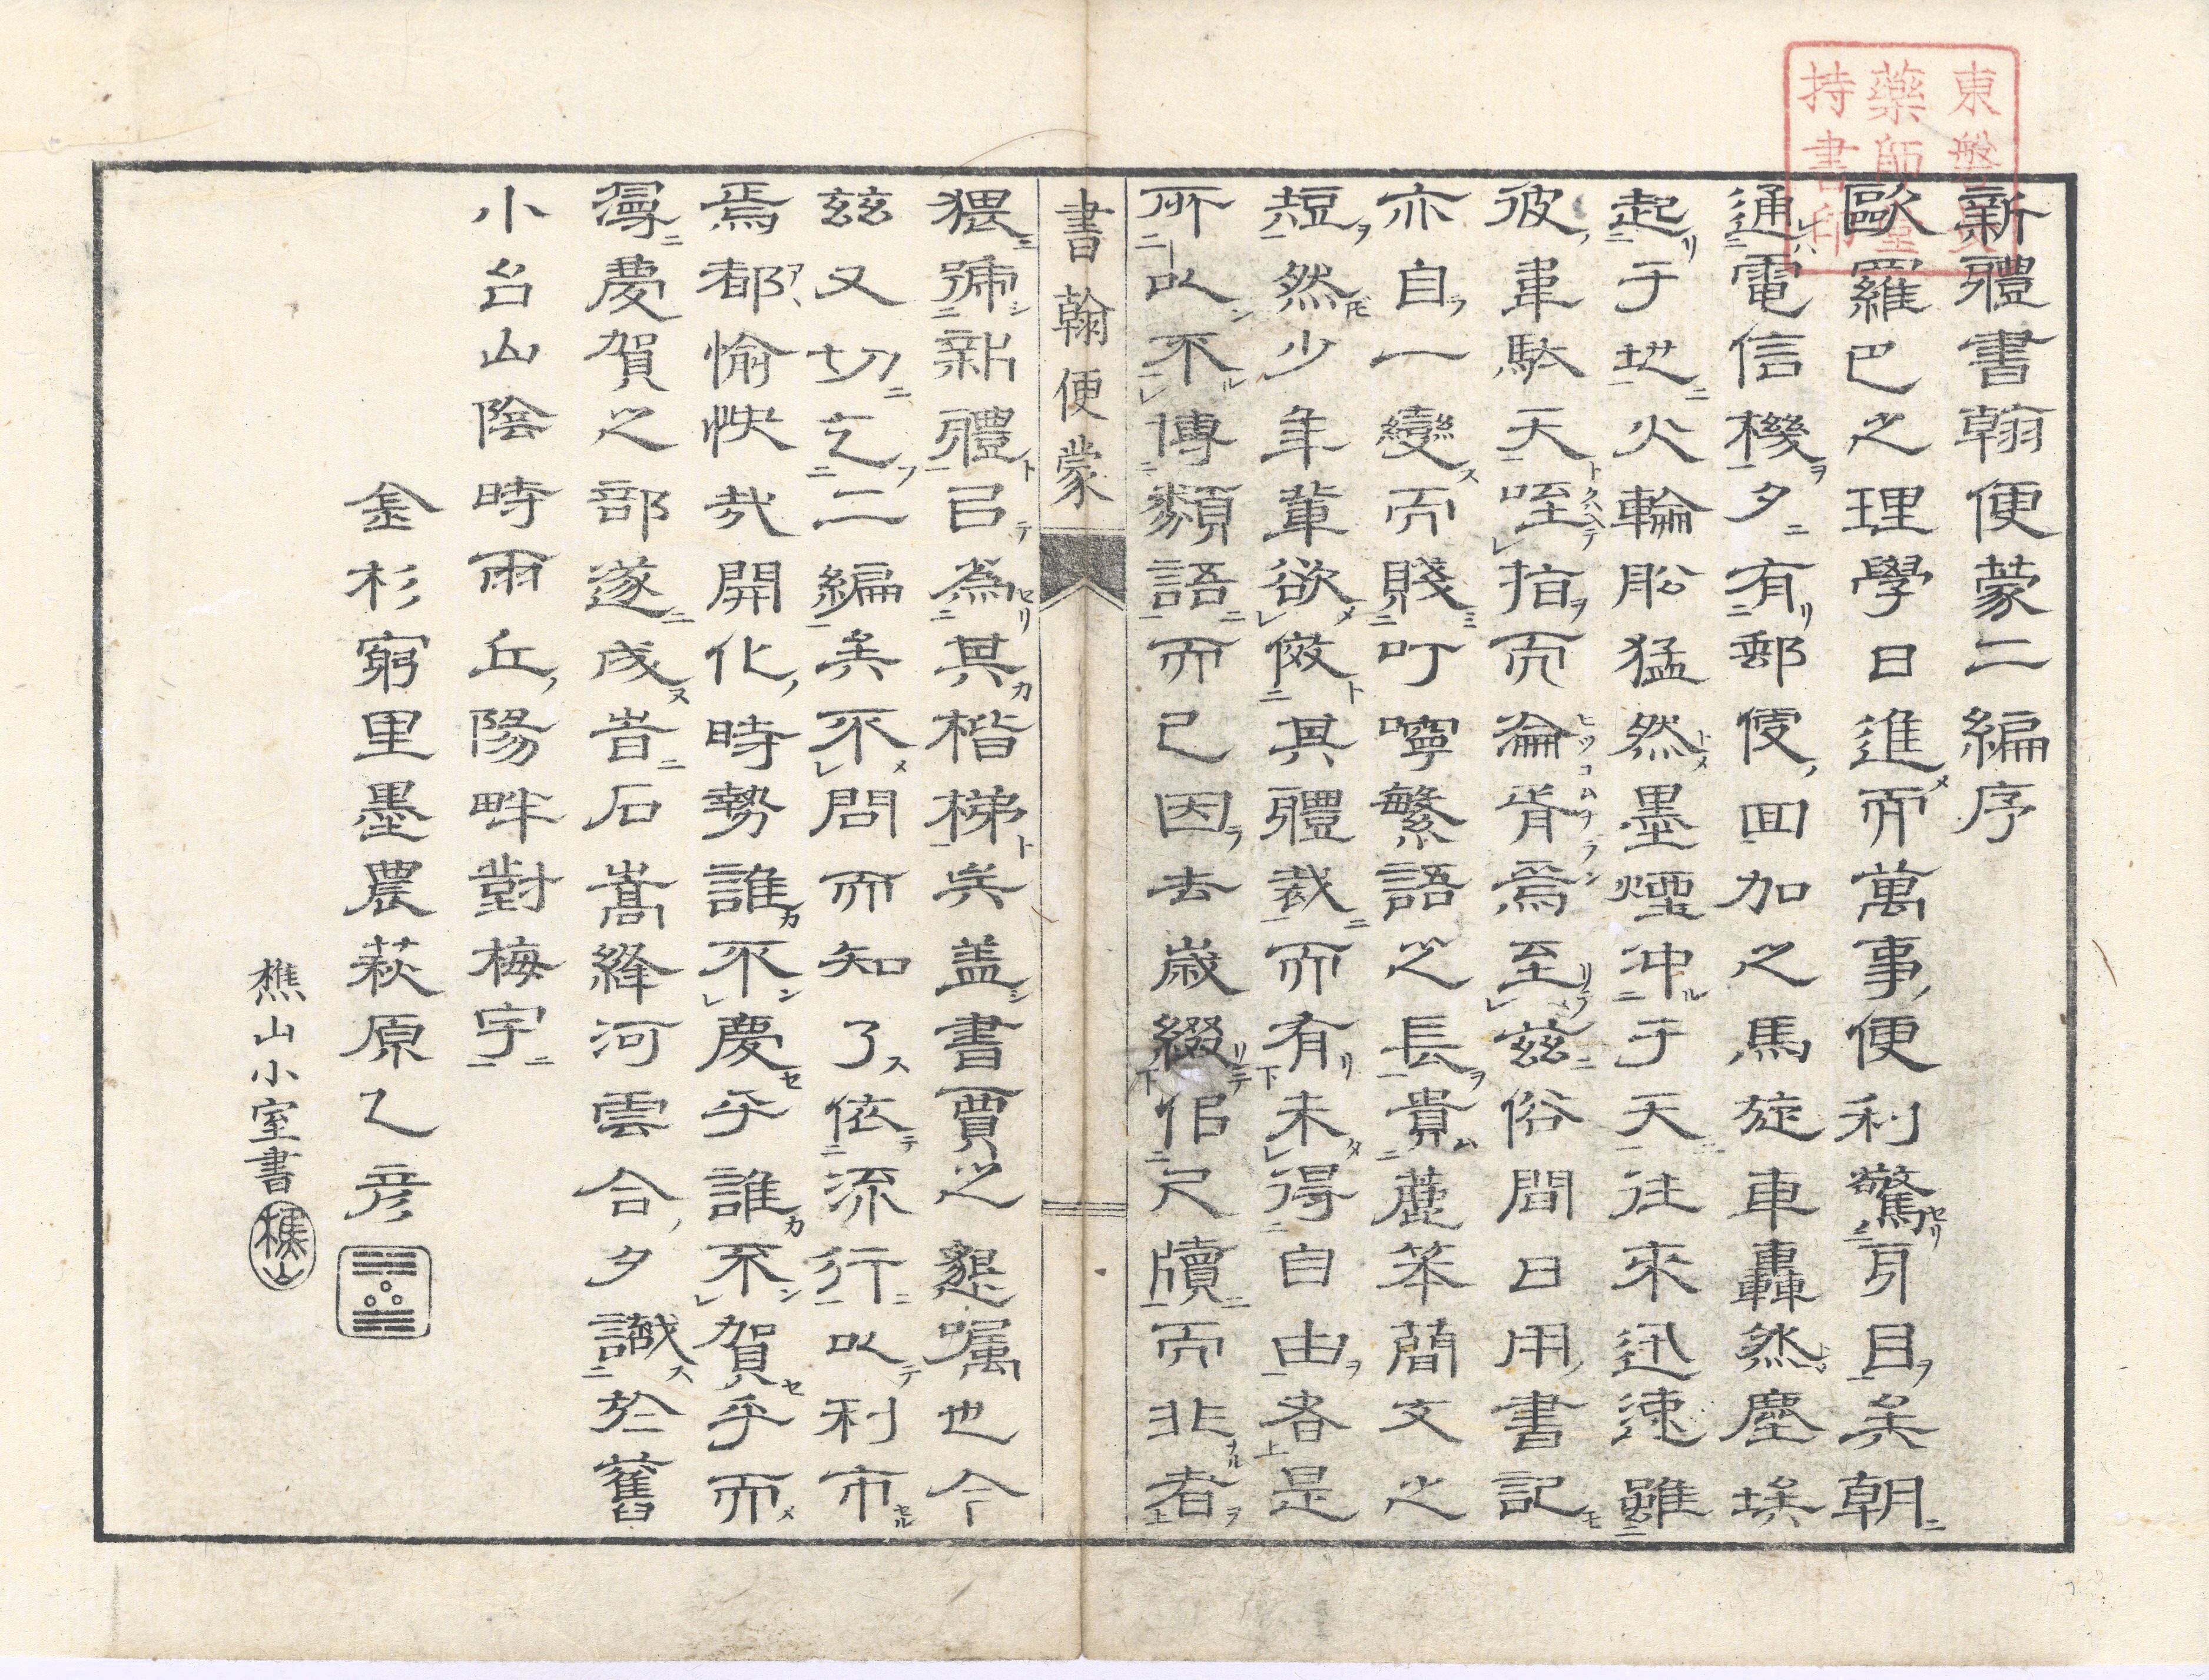 新體書翰便蒙二編序
歐羅巴之理學日進而萬事便利驚耳目矣朝
通電信機夕有郵便回加之馬旋車轟然塵埃
起于地火輪船猛然墨煙冲于天往來迅速雖
彼韋駄天咥指而淪胥焉至茲俗間日用書記
亦自一變而賤叮嚀繁語之長貴麁笨簡文之
短然少年輩欲傚其體裁而有未得自由者是
所以不博類語而已因去歲綴作尺牘而非者
書翰便蒙
猥號新體㠯為其楷梯矣盖書賈之懇嘱也今
茲又切乞二編矣不問而知了依流行以利市
焉都愉快哉開化時勢誰不慶乎誰不賀乎而
漫慶賀之部遂成旹石嵩絳河雲合夕識於舊
小台山陰時雨丘陽畔對梅宇
金杉窮里墨農萩原乙彦
樵山小室書
樵山
藥師堂
持書印